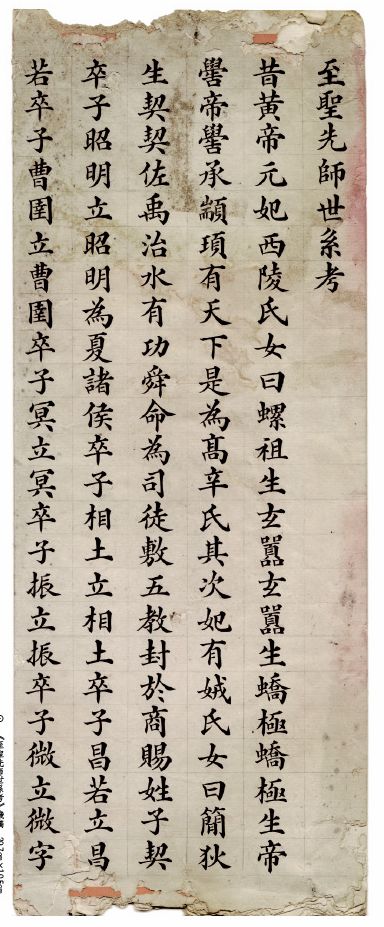 至聖先師世系考
昔黃帝元妃西陵氏女曰螺祖生玄囂玄囂生蟜極蟜極生帝
嚳帝嚳承顓頊有天下是為高辛氏其次妃有娀氏女曰簡狄
生契契佐禹治水有功舜命為司徒敷五教封於商賜姓子契
卒子昭明立昭明為夏諸侯卒子相土立相土卒子昌若立昌
若卒子曹圉立曹圉卒子冥立冥卒子振立振卒子微立微字